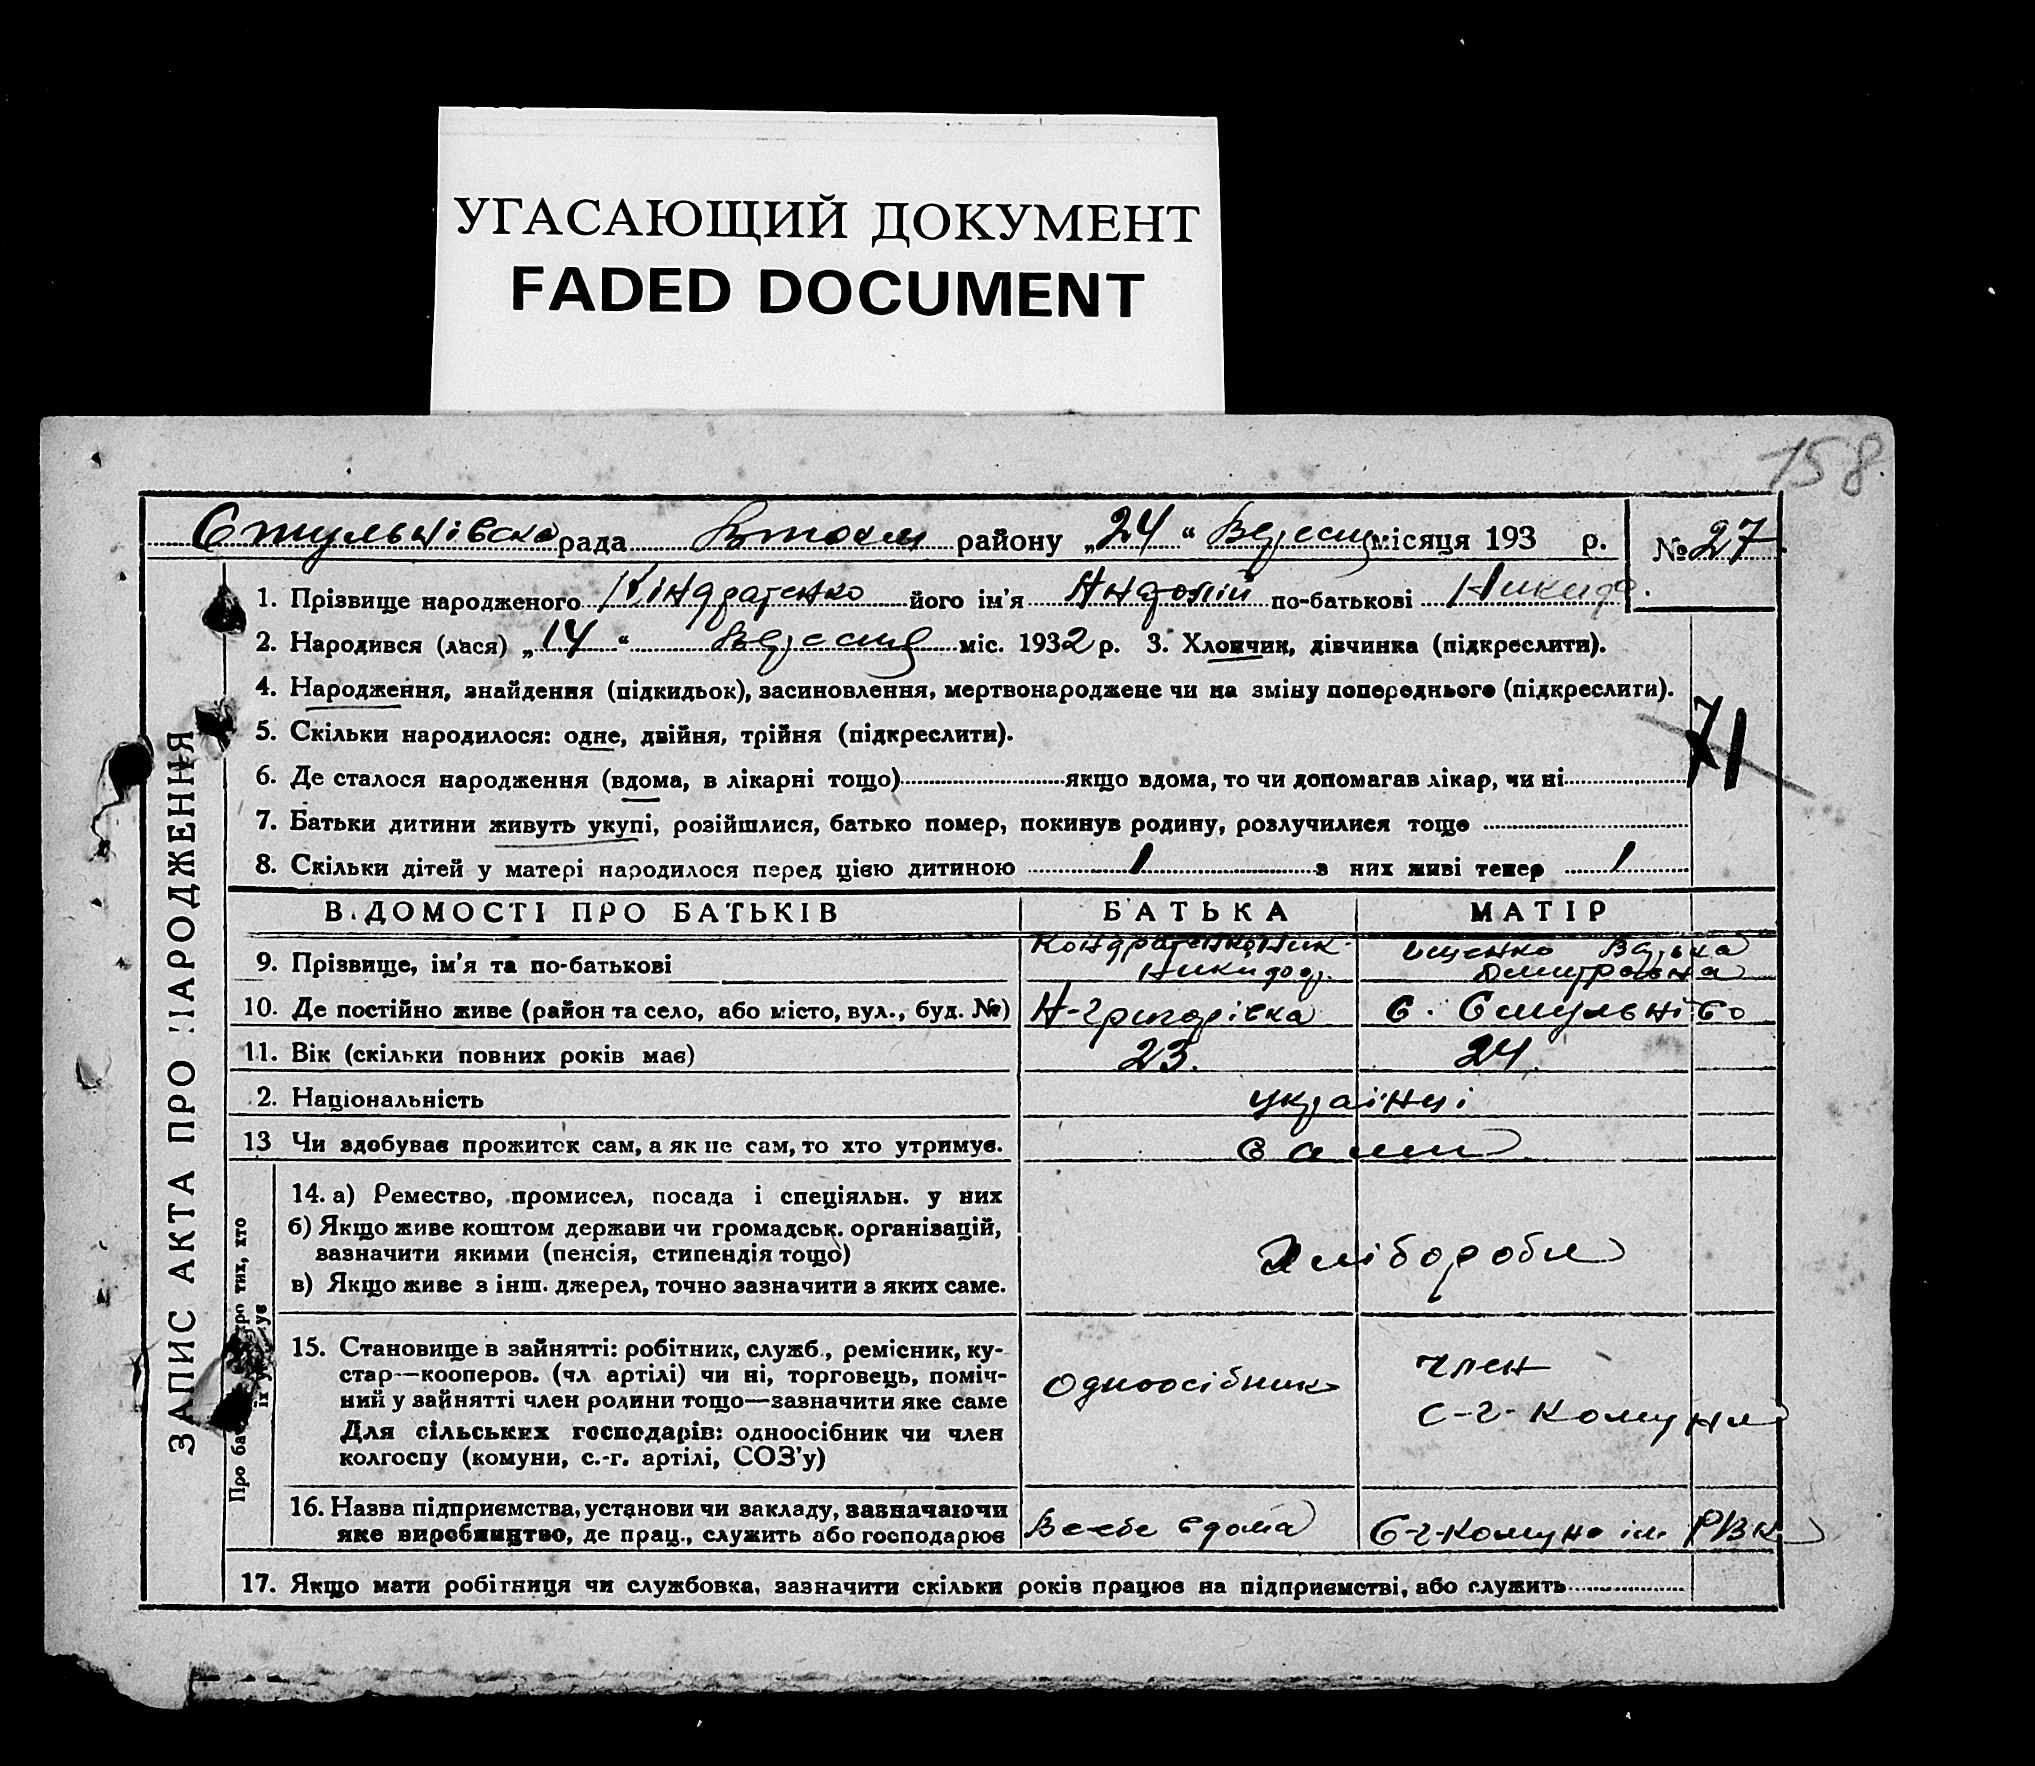 УГАСАЮЩИЙ ДОКУМЕНТ
FADED DOCUMENT
158.
Стульнівська рада району „24“ Вересня місяця 193 р. № 27
1. Прізвище народженого Кіндратенко його ім'я по-батькові
2. Народився (лася) „14“ Вересня міс. 1932 р. 3. Хлопчик, дівчинка (підкреслити).
4. Народження, знайдення (підкидьок), засиновлення, мертвонароджене чи на зміну попереднього (підкреслити).
5. Скільки народилося: одне, двійня, трійня (підкреслити).
71
6. Де сталося народження (вдома, в лікарні тощо) якщо вдома, то чи допомагав лікар, чи ні
7. Батьки дитини живуть укупі, розійшлися, батько помер, покинув родину, розлучилися тоще
8. Скільки дітей у матері народилося перед цією дитиною 1 в них живі тепер 1
ВІДОМОСТІ ПРО БАТЬКІВ БАТЬКА МАТІР
9. Прізвище, ім'я та по-батькові Кондратенко
10. Де постійно живе (район та село, або місто, вул., буд. №) Н-Григорівка С. Стульнєво
11. Вік (скільки повних років має) 23. 24.
2. Національність українці
13 Чи здобуває прожиток сам, а як не сам, то хто утримує. сами
14. а) Ремество, промисел, посада і спеціяльн. у них
б) Якщо живе коштом держави чи громадськ. організацій,
зазначити якими (пенсія, стипендія тощо)
Хлібороби
в) Якщо живе з інш. джерел, точно зазначити з яких саме.
15. Становище в зайнятті: робітник, служб., ремісник, ку-
стар—кооперов. (чл артілі) чи ні, торговець, поміч-
ний у зайнятті член родини тощо—зазначити яке саме
Для сільських господарів: одноосібник чи член
колгоспу (комуни, с.-г. артілі, СОЗ'у)
Одноосібник
член
с-г- Комуни
16. Назва підприємства, установи чи закладу, зазначаючи
яке виробництво, де прац., служить або господарює
В себе вдома С-г-Комуна ім РВК
17. Якщо мати робітниця чи службовка, зазначити скільки років працює на підприємстві, або служить
ЗАПИС АКТА ПРО НАРОДЖЕННЯ